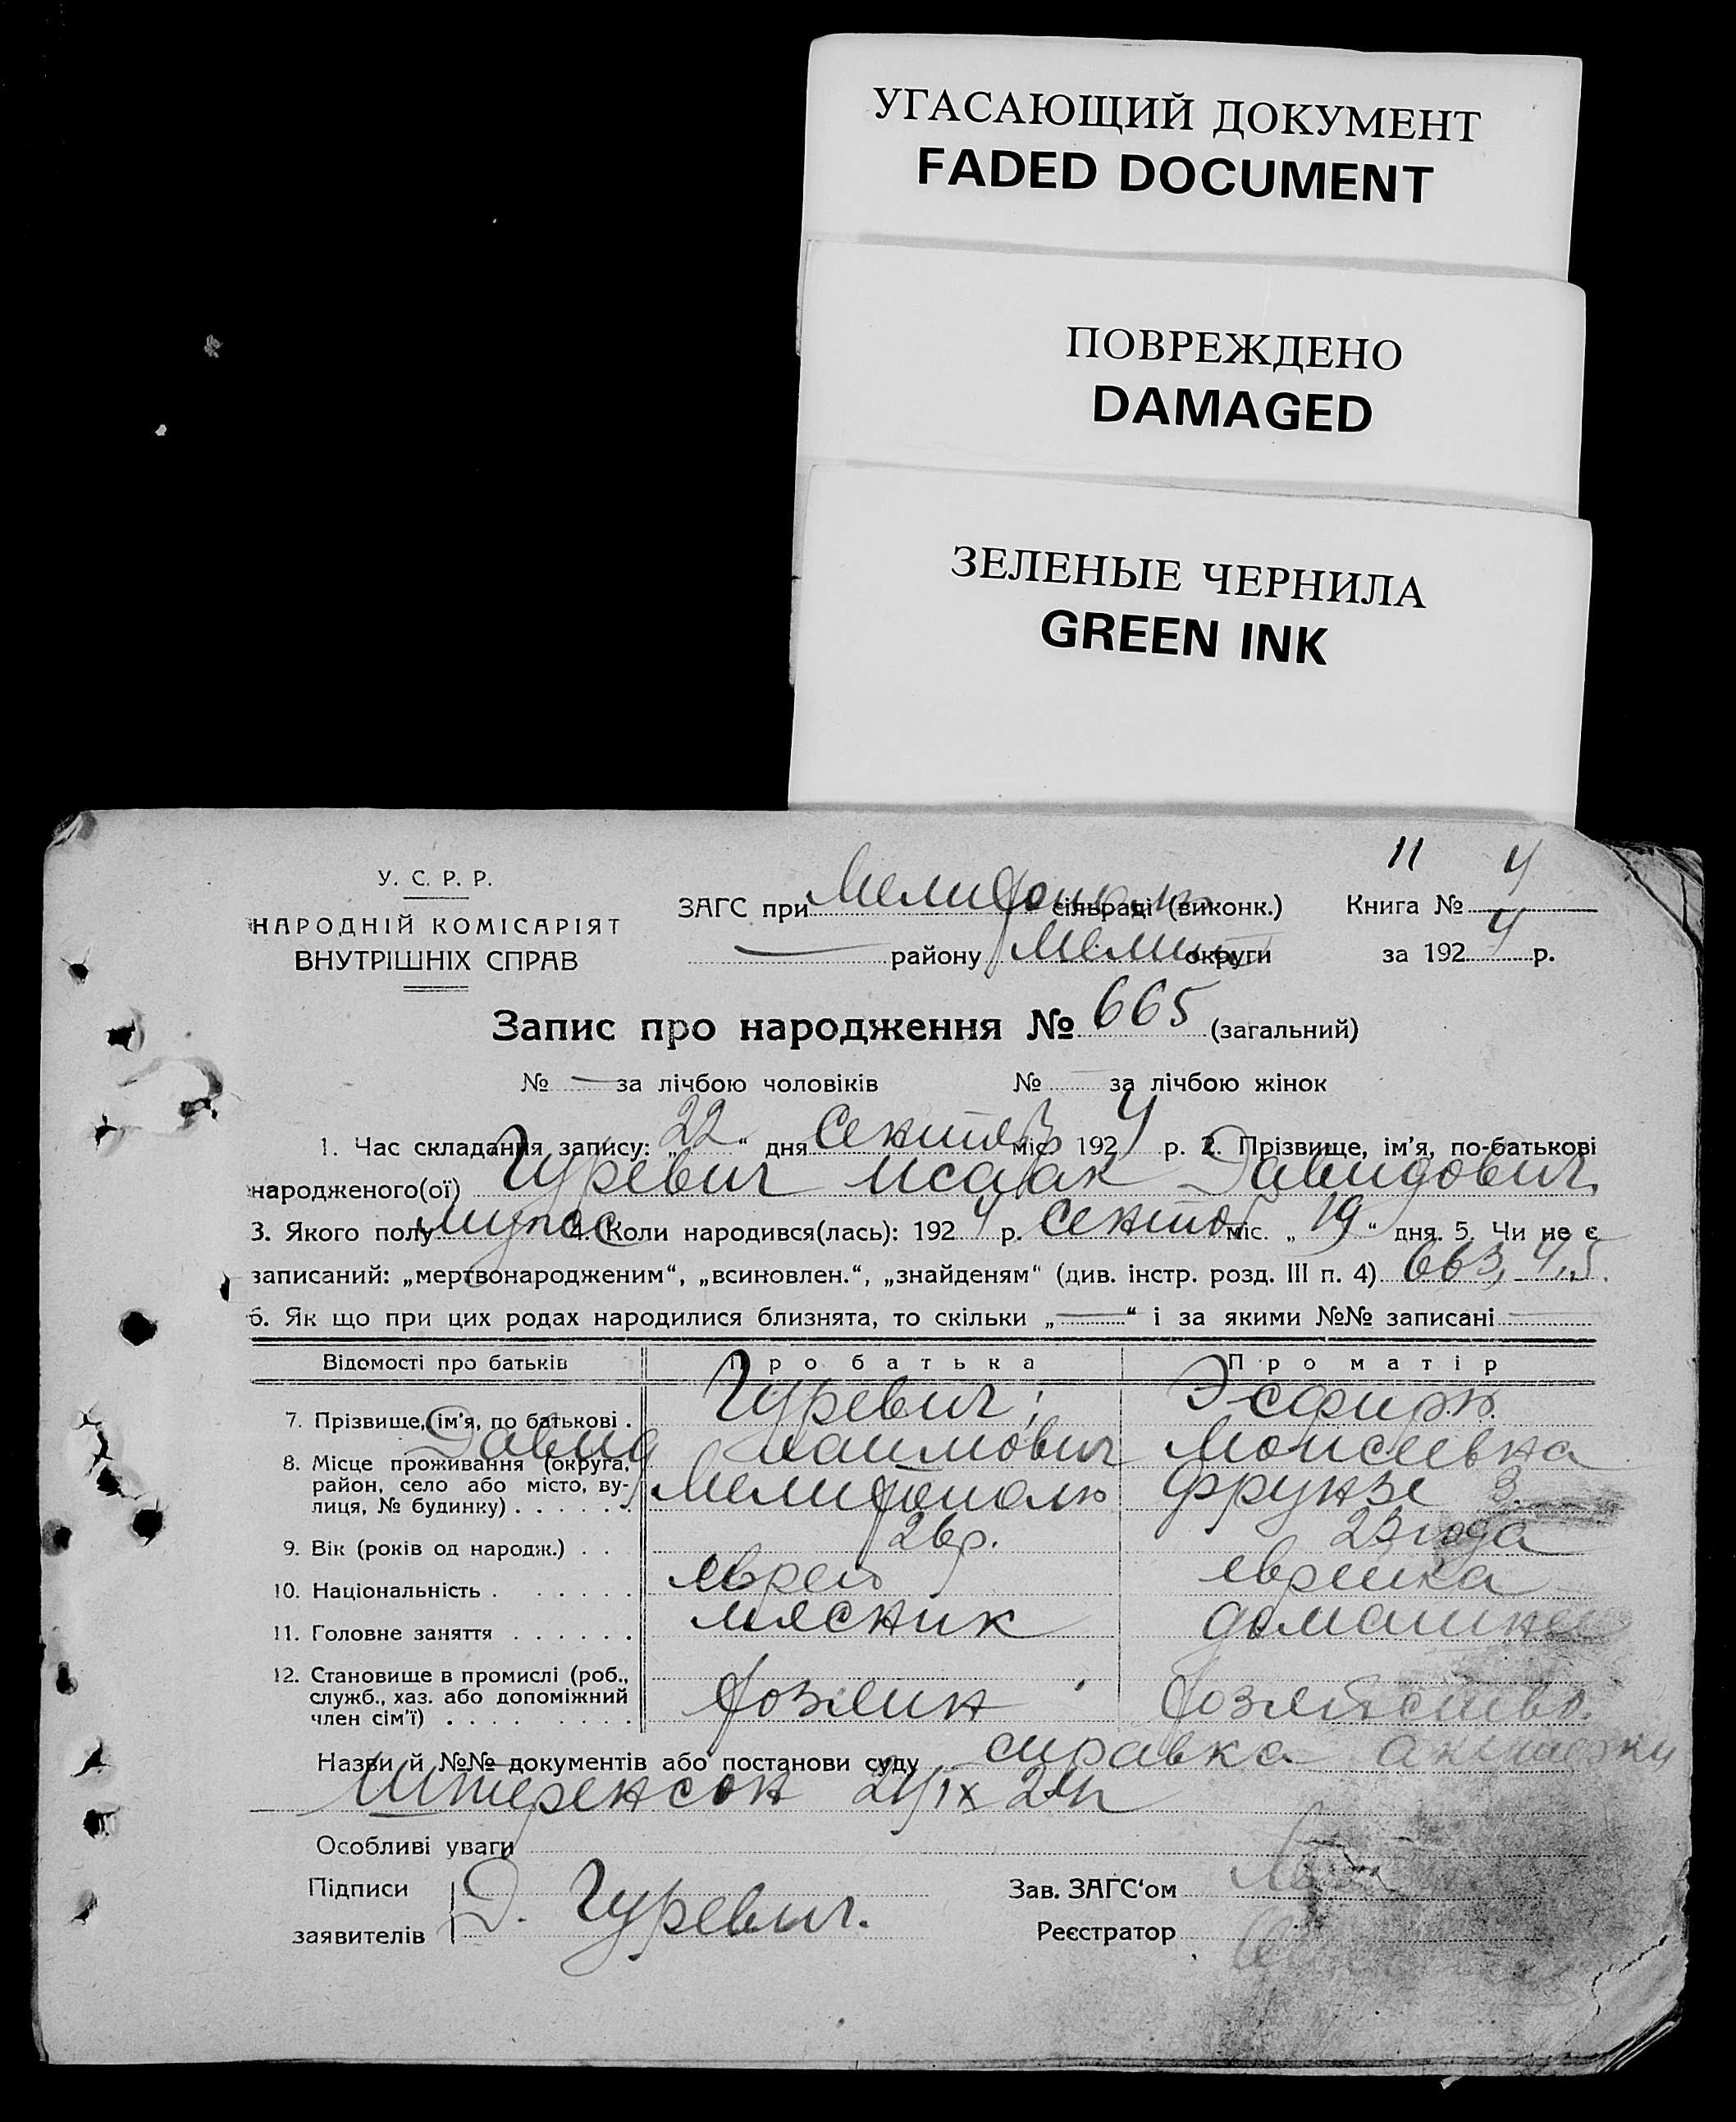 УГАСАЮЩИЙ ДОКУМЕНТ
FADED DOCUMENT
ПОВРЕЖДЕНО
DAMAGED
ЗЕЛЕНЫЕ ЧЕРНИЛА
GREEN INK
11 4
У. С. Р. Р.
НАРОДНІЙ КОМІСАРІЯТ
ВНУТРІШНІХ СПРАВ
ЗАГС при Мелитополь сільраді (виконк.) Книга №
— району Мелит округи за 1924 р.
Запис про народження № 665 (загальний)
№ — за лічбою чоловіків № — за лічбою жінок
1. Час складання запису: „22“ дня Сентяб міс. 1924 р. 2. Прізвище, ім’я, по-батькові
народженого(ої) Гуревич Исаак Давидович
3. Якого полу мужес 4. Коли народився(лась): 1924 р. Сентяб міс. „19“ дня. 5. Чи не є
записаний: „мертвонародженим“, „всиновлен.“, „знайденям“ (див. інстр. розд. III п. 4) 663, 4, 5.
6. Як що при цих родах народилися близнята, то скільки „—“ і за якими №№ записані —
Відомості про батьків Про батька Про матір
7. Прізвище, ім’я, по батькові . Гуревич; Эсфирь
Давид Хаимович Моисеевна
8. Місце проживання (округа,
район, село або місто, ву-
лиця, № будинку) . . . . . Мелитополь Фрунзе 3.
9. Вік (років од народж.) . . 26 р. 23 года
10. Національність . . . . . . еврей еврейка
11. Головне заняття . . . . . . мясник домашнее
12. Становище в промислі (роб.,
служб., хаз. або допоміжний
член сім’ї) . . . . . . . . . хозяин хозяйство.
Назви й №№ документів або постанови суду справка акушерки
Штеренсон 21/IX 24 г
Особливі уваги
Підписи
заявителів Д. Гуревич.
Зав. ЗАГС‘ом
Реєстратор